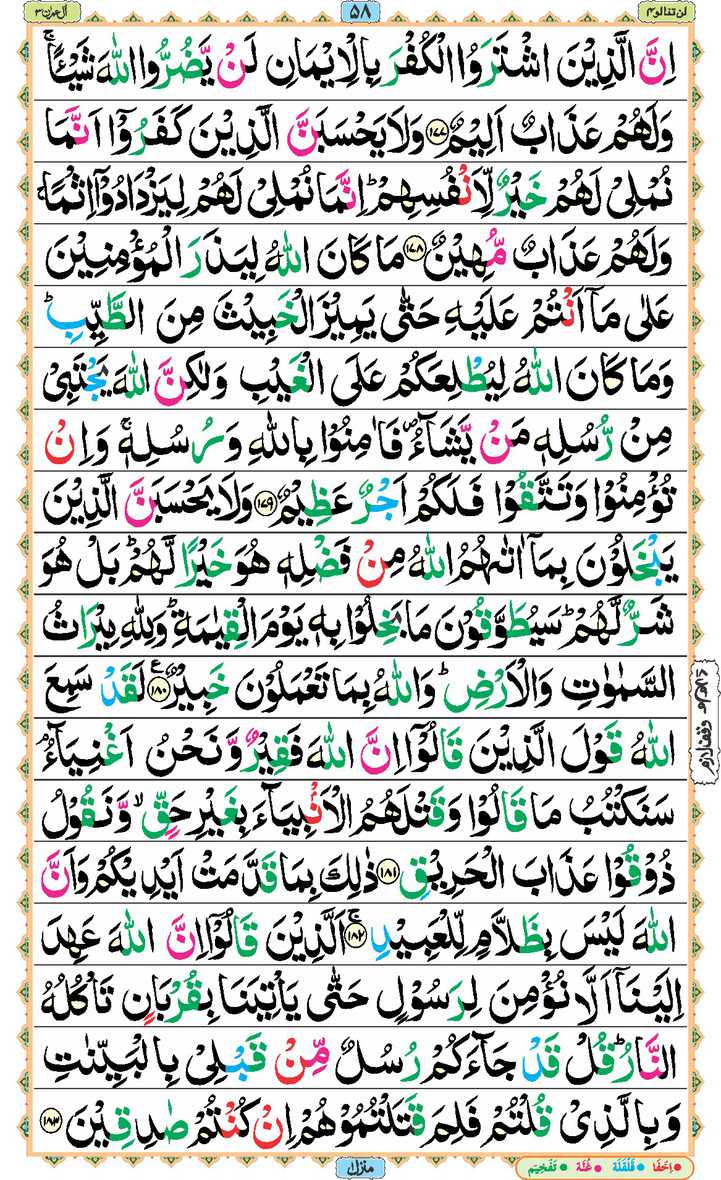 لن تنالوا ٤ ٥٨ اٰل عمرٰن ٣
اِنَّ الَّذِيْنَ اشْتَرَوُا الْكُفْرَ بِالْاِيْمَانِ لَنْ يَّضُرُّوا اللّٰهَ شَيْـًٔا ۚ
وَلَهُمْ عَذَابٌ اَلِيْمٌ ﴿۱۷۷﴾ وَلَا يَحْسَبَنَّ الَّذِيْنَ كَفَرُوْۤا اَنَّمَا
نُمْلِيْ لَهُمْ خَيْرٌ لِّاَنْفُسِهِمْ ؕ اِنَّمَا نُمْلِيْ لَهُمْ لِيَزْدَادُوْۤا اِثْمًا ۚ
وَلَهُمْ عَذَابٌ مُّهِيْنٌ ﴿۱۷۸﴾ مَا كَانَ اللّٰهُ لِيَذَرَ الْمُؤْمِنِيْنَ
عَلٰى مَاۤ اَنْتُمْ عَلَيْهِ حَتّٰى يَمِيْزَ الْخَبِيْثَ مِنَ الطَّيِّبِ ؕ
وَمَا كَانَ اللّٰهُ لِيُطْلِعَكُمْ عَلَى الْغَيْبِ وَلٰكِنَّ اللّٰهَ يَجْتَبِيْ
مِنْ رُّسُلِهٖ مَنْ يَّشَآءُ ۪ فَاٰمِنُوْا بِاللّٰهِ وَرُسُلِهٖ ۚ وَاِنْ
تُؤْمِنُوْا وَتَتَّقُوْا فَلَكُمْ اَجْرٌ عَظِيْمٌ ﴿۱۷۹﴾ وَلَا يَحْسَبَنَّ الَّذِيْنَ
يَبْخَلُوْنَ بِمَاۤ اٰتٰىهُمُ اللّٰهُ مِنْ فَضْلِهٖ هُوَ خَيْرًا لَّهُمْ ؕ بَلْ هُوَ
شَرٌّ لَّهُمْ ؕ سَيُطَوَّقُوْنَ مَا بَخِلُوْا بِهٖ يَوْمَ الْقِيٰمَةِ ؕ وَلِلّٰهِ مِيْرَاثُ
السَّمٰوٰتِ وَالْاَرْضِ ؕ وَاللّٰهُ بِمَا تَعْمَلُوْنَ خَبِيْرٌ ﴿۱۸۰﴾ ع لَقَدْ سَمِعَ
اللّٰهُ قَوْلَ الَّذِيْنَ قَالُوْۤا اِنَّ اللّٰهَ فَقِيْرٌ وَّنَحْنُ اَغْنِيَآءُ ۘ
سَنَكْتُبُ مَا قَالُوْا وَقَتْلَهُمُ الْاَنْۢبِيَآءَ بِغَيْرِ حَقٍّ ۙ وَّنَقُوْلُ
ذُوْقُوْا عَذَابَ الْحَرِيْقِ ﴿۱۸۱﴾ ذٰلِكَ بِمَا قَدَّمَتْ اَيْدِيْكُمْ وَاَنَّ
اللّٰهَ لَيْسَ بِظَلَّامٍ لِّلْعَبِيْدِ ۚ﴿۱۸۲﴾ اَلَّذِيْنَ قَالُوْۤا اِنَّ اللّٰهَ عَهِدَ
اِلَيْنَاۤ اَلَّا نُؤْمِنَ لِرَسُوْلٍ حَتّٰى يَاْتِيَنَا بِقُرْبَانٍ تَاْكُلُهُ
النَّارُ ؕ قُلْ قَدْ جَآءَكُمْ رُسُلٌ مِّنْ قَبْلِيْ بِالْبَيِّنٰتِ
وَبِالَّذِيْ قُلْتُمْ فَلِمَ قَتَلْتُمُوْهُمْ اِنْ كُنْتُمْ صٰدِقِيْنَ ﴿۱۸۳﴾
وقف لازم
منزل ۱
اِخْفَا قَلْقَلَة غُنَّه تَفْخِيْم